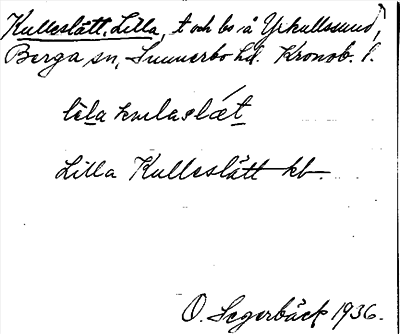 Kulleslätt, Lilla, t och bs i å Ykullssund,
Berga sn, Sunnerbo hd. Kronob. l.
lila kulaslæt
Lilla Kulleslätt kb.
O. Segerbäck 1936.